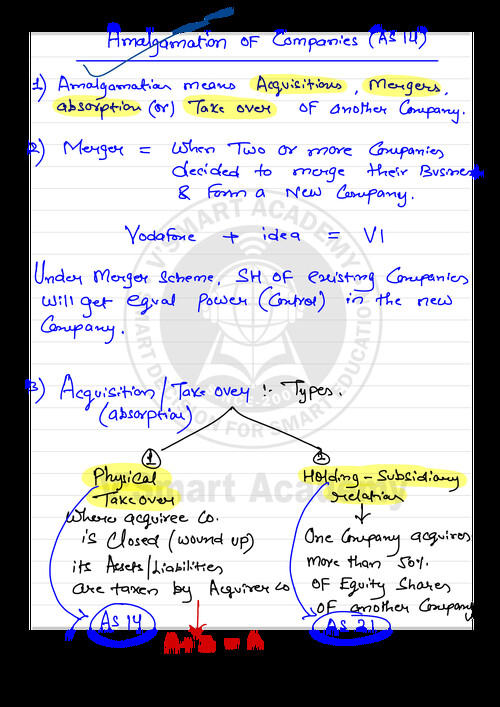 Amalgamation OF Companies (AS 14)
1) Amalgamation means Acquisitions, Mergers,
absorption (or) Take over OF another Company.
2) Merger = When Two or more Companies
decided to merge their Business
& Form a New Company.
Vodafone + idea = VI
Under Merger Scheme, SH OF existing Companies
will get equal Power (Control) in the new
Company.
3) Acquisition/Take over :- Types.
(absorption)
1
Physical
Take over
Where acquiree Co.
is Closed (wound up)
its Assets/Liabilities
are taken by Acquirer Co
AS 14
A+B = A
2
Holding - Subsidiary
relation
One Company acquires
more than 50%
OF Equity Shares
OF another Company
AS 21
V SMART ACADEMY
SMART DECISION FOR SMART EDUCATION
V Smart Academy